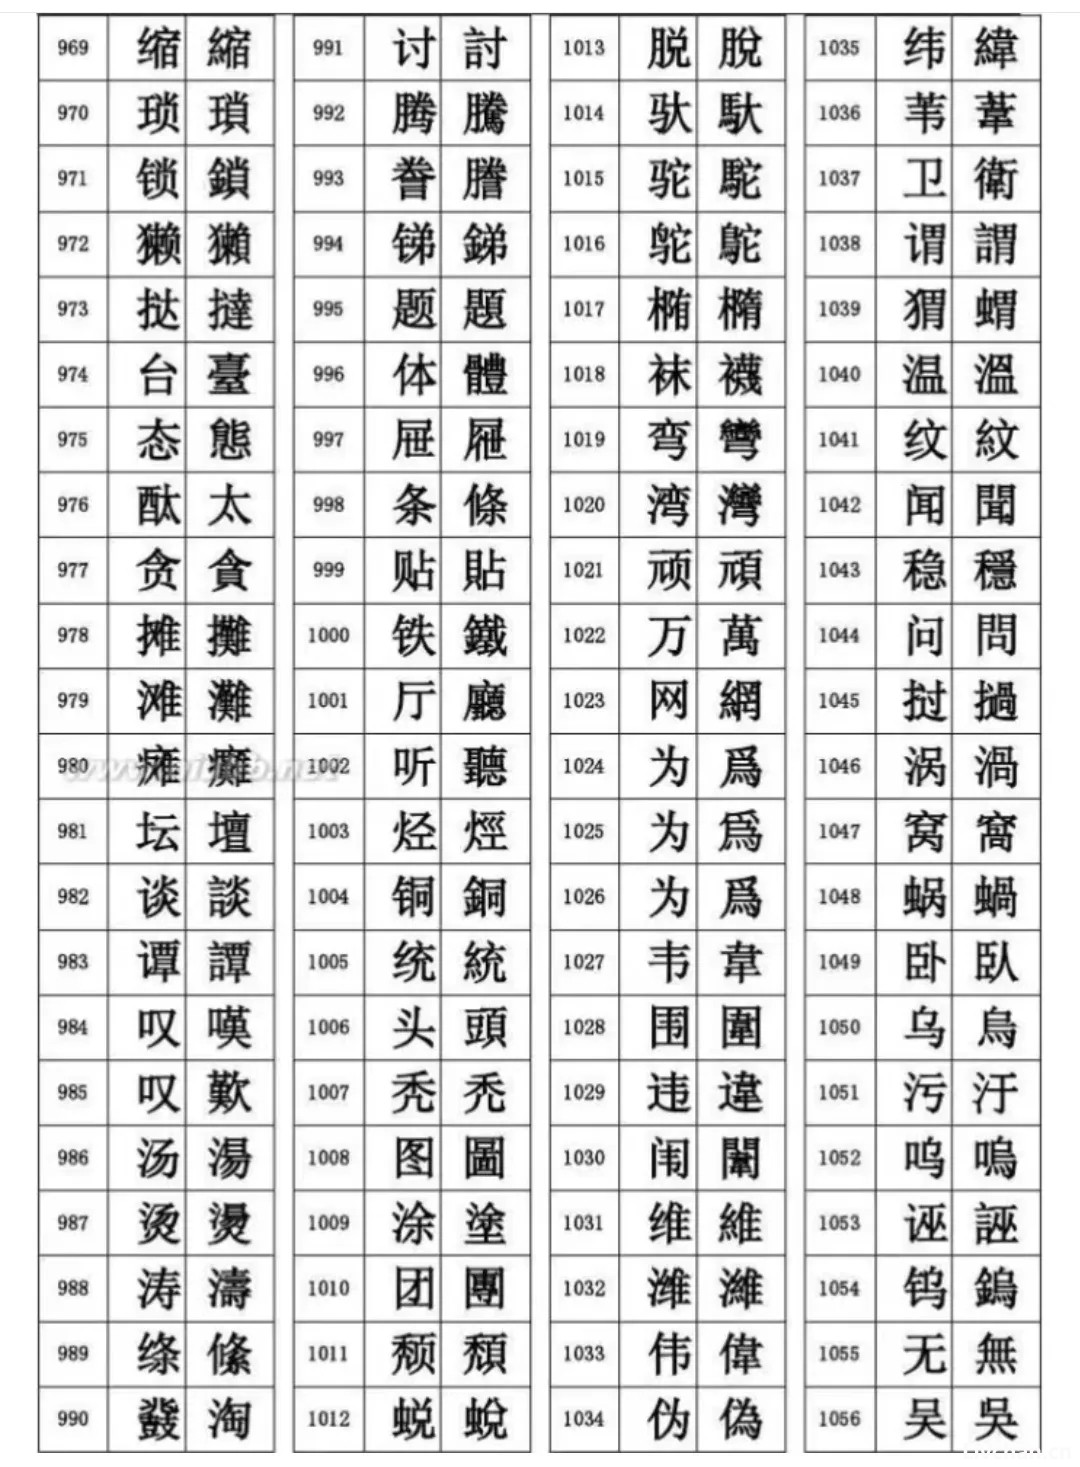 969 缩 縮 991 讨 討 1013 脱 脫 1035 纬 緯
970 琐 瑣 992 腾 騰 1014 驮 馱 1036 苇 葦
971 锁 鎖 993 誊 謄 1015 驼 駝 1037 卫 衛
972 獭 獺 994 锑 銻 1016 鸵 鴕 1038 谓 謂
973 挞 撻 995 题 題 1017 椭 橢 1039 猬 蝟
974 台 臺 996 体 體 1018 袜 襪 1040 温 溫
975 态 態 997 屉 屜 1019 弯 彎 1041 纹 紋
976 酞 太 998 条 條 1020 湾 灣 1042 闻 聞
977 贪 貪 999 贴 貼 1021 顽 頑 1043 稳 穩
978 摊 攤 1000 铁 鐵 1022 万 萬 1044 问 問
979 滩 灘 1001 厅 廳 1023 网 網 1045 挝 撾
980 瘫 癱 1002 听 聽 1024 为 爲 1046 涡 渦
981 坛 壇 1003 烃 烴 1025 为 爲 1047 窝 窩
982 谈 談 1004 铜 銅 1026 为 爲 1048 蜗 蝸
983 谭 譚 1005 统 統 1027 韦 韋 1049 卧 臥
984 叹 嘆 1006 头 頭 1028 围 圍 1050 乌 烏
985 叹 歎 1007 秃 禿 1029 违 違 1051 污 汙
986 汤 湯 1008 图 圖 1030 闱 闈 1052 呜 嗚
987 烫 燙 1009 涂 塗 1031 维 維 1053 诬 誣
988 涛 濤 1010 团 團 1032 潍 濰 1054 钨 鎢
989 绦 絛 1011 颓 頹 1033 伟 偉 1055 无 無
990 淘 1012 蜕 蛻 1034 伪 偽 1056 吴 吳